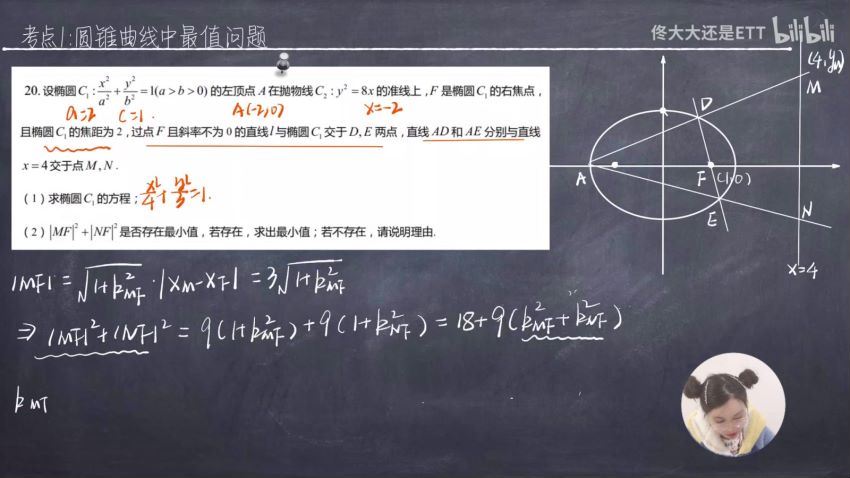 考点1:圆锥曲线中最值问题
佟大大还是ETT bilibili
20. 设椭圆C₁: x²/a² + y²/b² = 1(a > b > 0)的左顶点A在抛物线C₂: y² = 8x的准线上, F是椭圆C₁的右焦点,
a=2 c=1 A(-2,0) x=-2
且椭圆C₁的焦距为2, 过点F且斜率不为0的直线l与椭圆C₁交于D,E两点, 直线AD和AE分别与直线
x=4交于点M,N.
(1) 求椭圆C₁的方程; x²/4 + y²/3 = 1.
(2) |MF|² + |NF|²是否存在最小值, 若存在, 求出最小值; 若不存在, 请说明理由.
(4, yₘ)
M
D
A
F
(1,0)
E
N
x=4
|MF| = √(1+k²_MF) · |x_M - x_F| = 3√(1+k²_MF)
⇒ |MF|² + |NF|² = 9(1+k²_MF) + 9(1+k²_NF) = 18 + 9(k²_MF + k²_NF)
k_MF